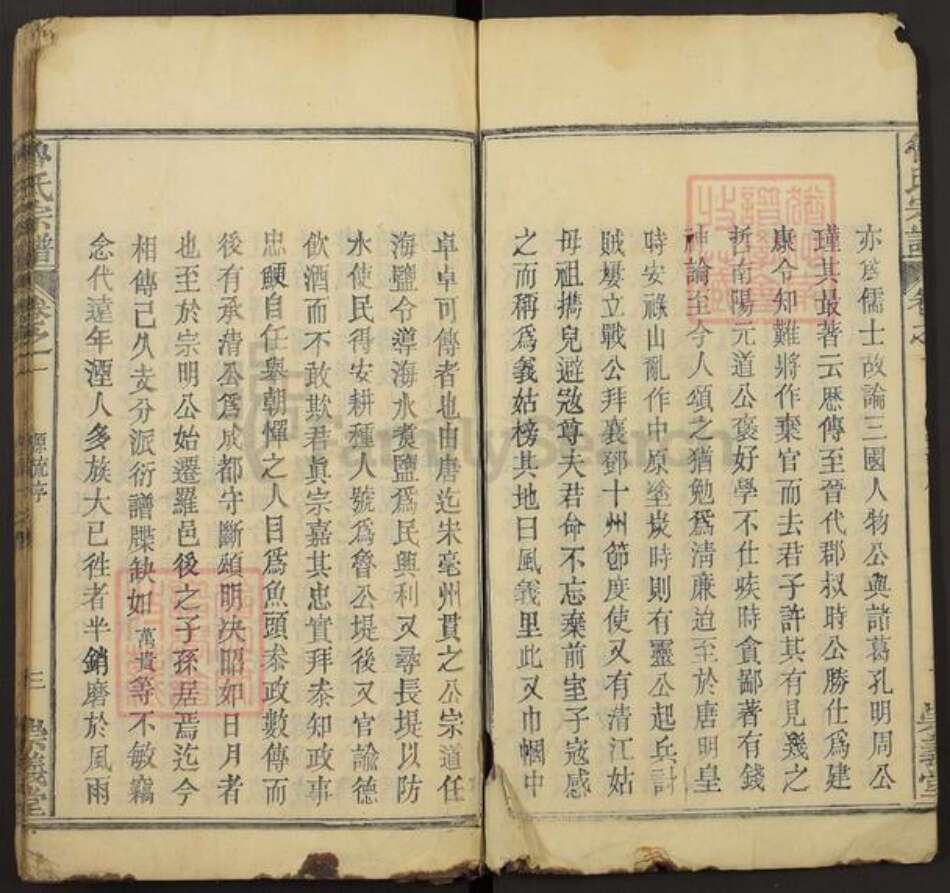 亦爲儒士故論三國人物公與諸葛孔明周公
瑾其最著云歷傳至晉代郡叔時公勝仕爲建
康令知難將作棄官而去君子許其有見幾之
哲南陽元道公褒好學不仕疾時貪鄙著有錢
神論至今人頌之猶勉爲清廉迨至於唐明皇
時安祿山亂作中原塗炭時則有靈公起兵討
賊屢立戰公拜襄鄧十州節度使又有清江姑
母祖攜兒避寇尊夫君命不忘棄前室子寇感
之而稱爲義姑榜其地曰風義里此又巾幗中
卓卓可傳者也由唐迄宋亳州貫之公宗道任
海鹽令導海水煮鹽爲民興利又尋長堤以防
水使民得安耕種人號爲魯公堤後又官諭德
飲酒而不敢欺君眞宗嘉其忠實拜叅知政事
忠鯁自任舉朝憚之人目爲魚頭叅政數傳而
後有承清公爲成都守斷頌明决昭如日月者
也至於宗明公始遷羅邑後之子孫居焉迄今
相傳已久支分派衍譜牒缺如萬貴等不敏竊
念代遠年湮人多族大已徃者半銷磨於風雨
魯氏宗譜
卷之一
源流序
三